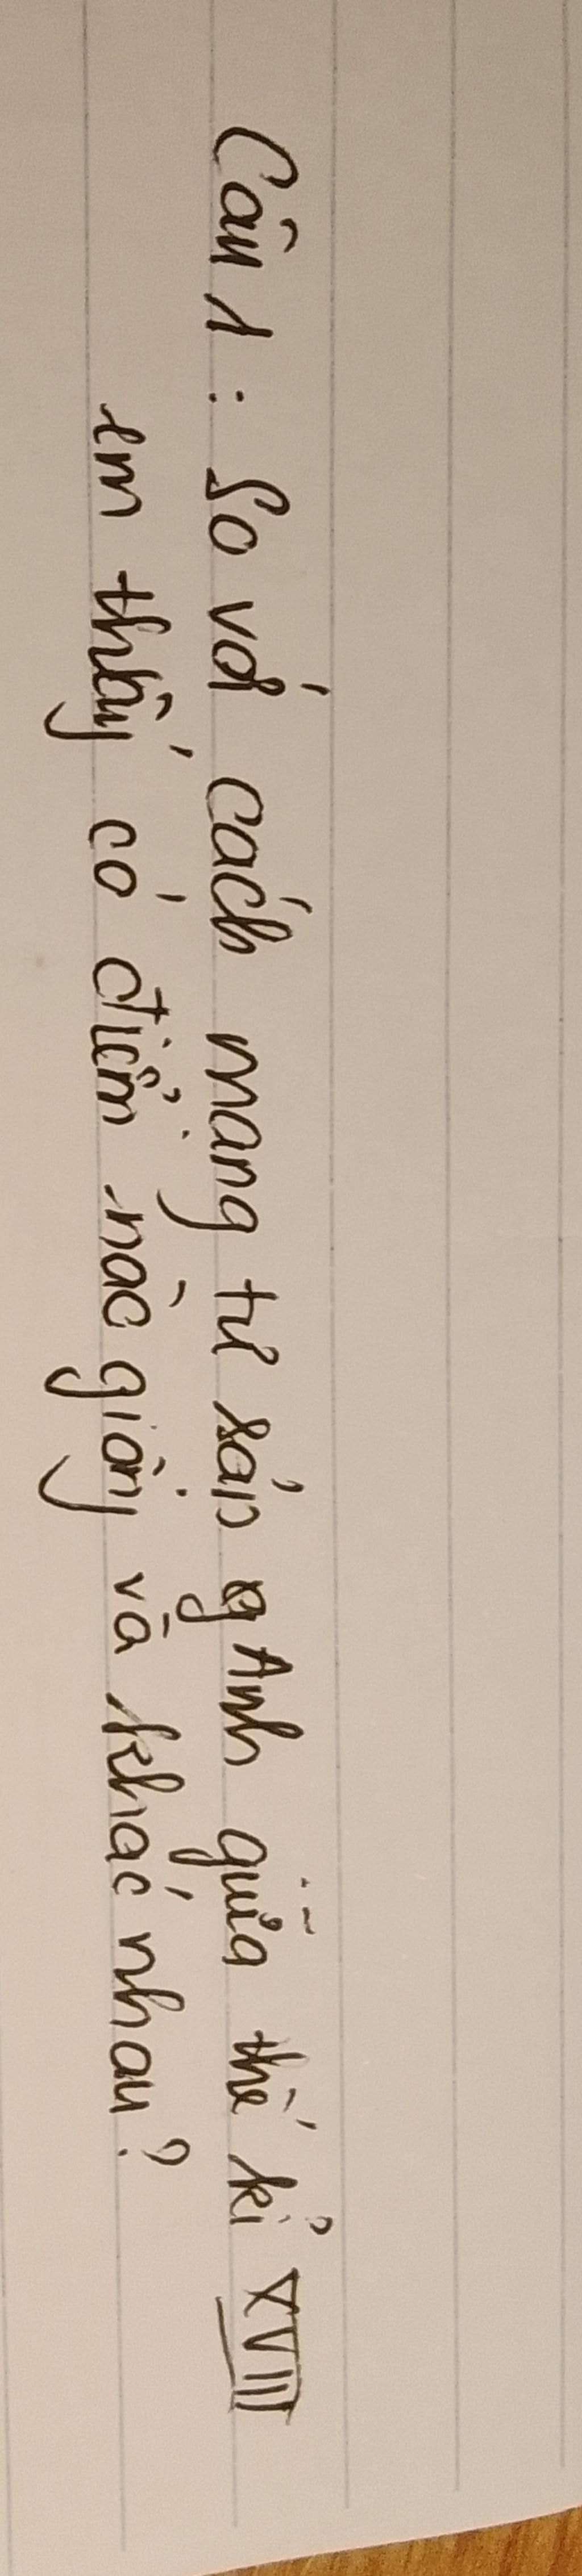 Câu 1: So với cách mạng tư sản Anh giữa thế kỉ XVIII
em thấy có điểm nào giống và khác nhau?